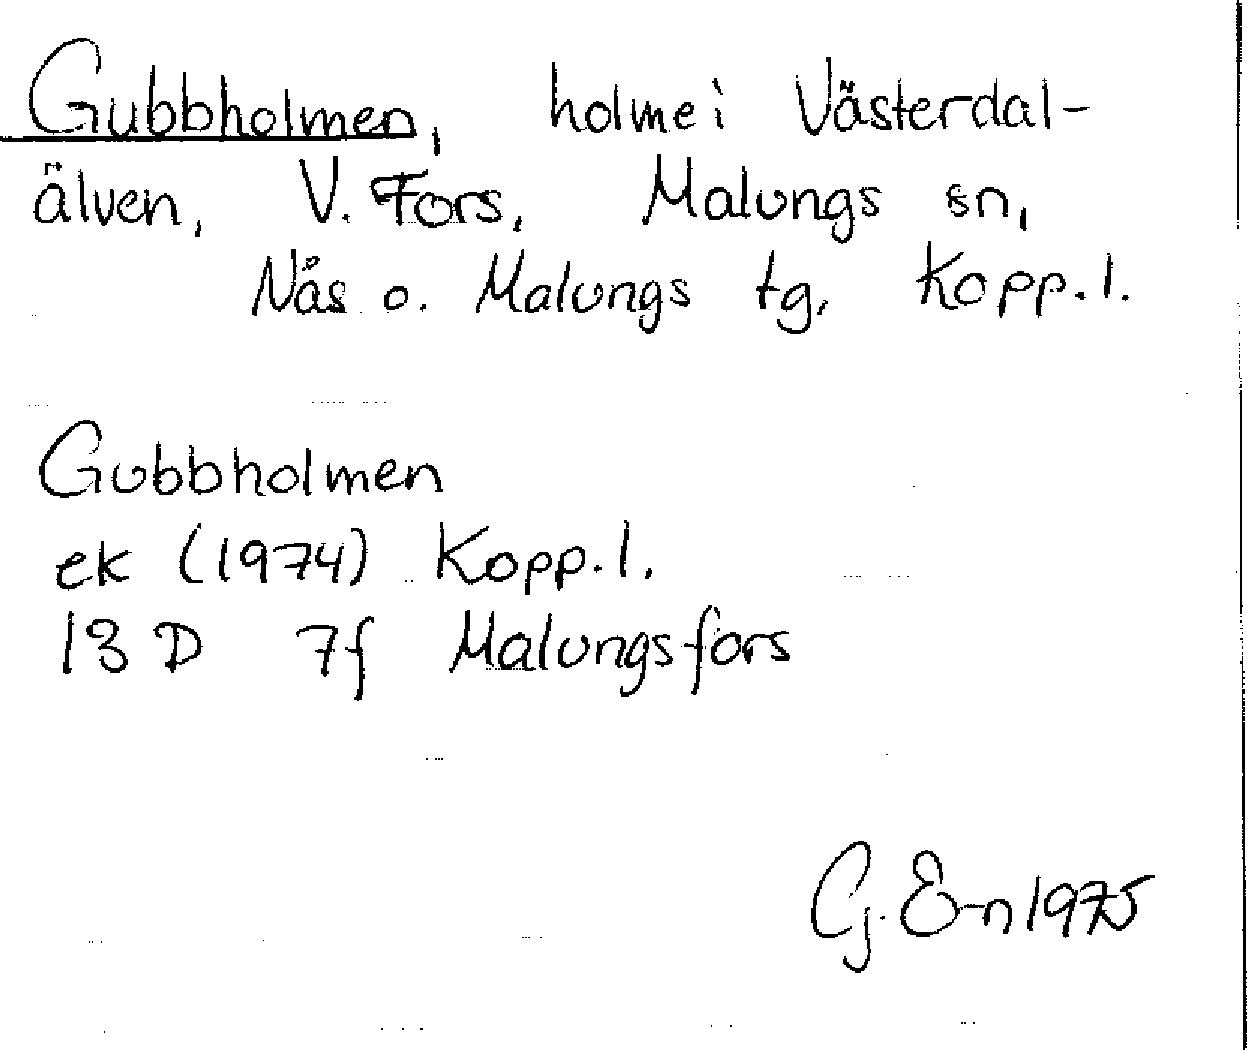 Gubbholmen, holme i Västerdal-
älven, V. Fors, Malungs sn,
Nås o. Malungs tg, Kopp. l.
Gubbholmen
ek (1974) Kopp. l.
13 D 7f Malungsfors
G. E-n 1975